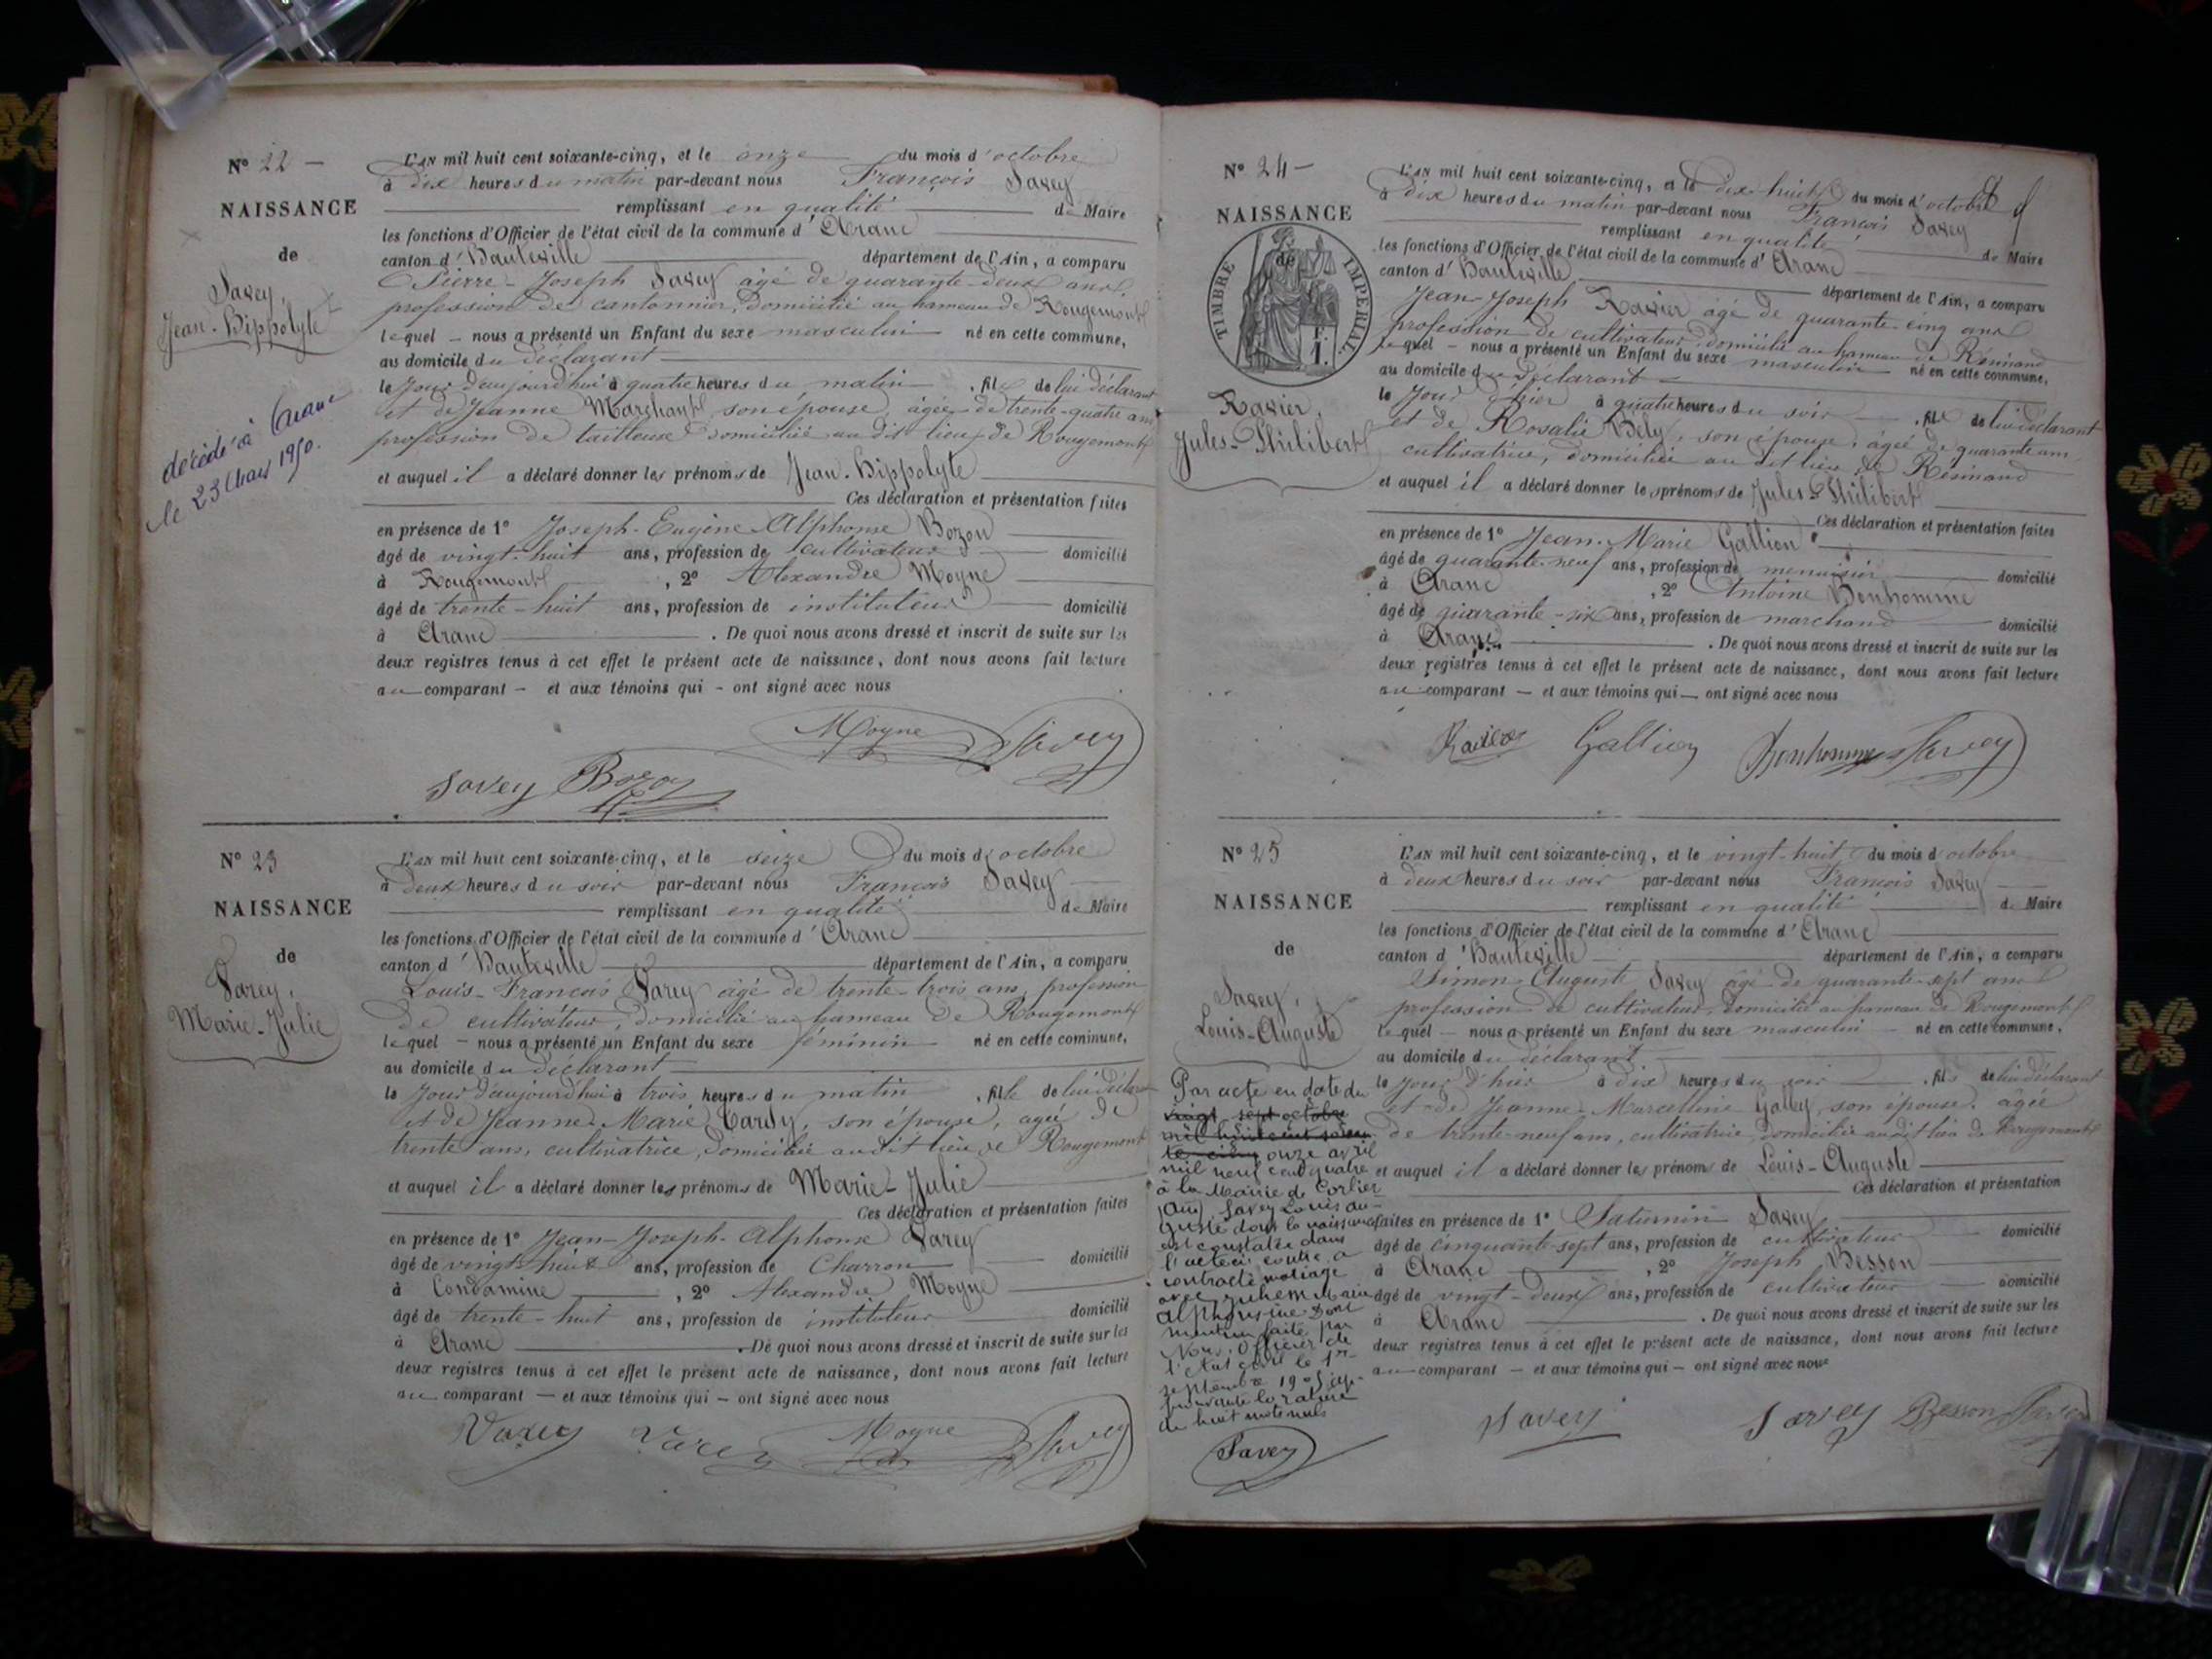 N° 22 —
NAISSANCE
de
Savey,
Jean-Hippolyte
décédé à Aranc
le 23 Mars 1950.
L'AN mil huit cent soixante-cinq, et le onze du mois d'octobre
à dix heures du matin par-devant nous François Savey
remplissant en qualité de Maire
les fonctions d'Officier de l'état civil de la commune d'Aranc
canton d'Hauteville département de l'Ain, a comparu
Pierre-Joseph Savey âgé de quarante-deux ans,
profession de cantonnier, domicilié au hameau de Rougemont
lequel — nous a présenté un Enfant du sexe masculin né en cette commune,
au domicile du déclarant
le jour d'aujourd'hui à quatre heures du matin, fils de lui déclarant
et de Jeanne Marchant son épouse, âgée de trente-quatre ans
profession de tailleuse domiciliée au dit lieu de Rougemont
et auquel il a déclaré donner les prénoms de Jean-Hippolyte
Ces déclaration et présentation faites
en présence de 1° Joseph-Eugène-Alphonse Bozon
âgé de vingt-huit ans, profession de cultivateur domicilié
à Rougemont, 2° Alexandre Moyne
âgé de trente-huit ans, profession de instituteur domicilié
à Aranc. De quoi nous avons dressé et inscrit de suite sur les
deux registres tenus à cet effet le présent acte de naissance, dont nous avons fait lecture
au comparant — et aux témoins qui — ont signé avec nous
Moyne Savey
Savey Bozon
N° 23
NAISSANCE
de
Varey,
Marie-Julie
L'AN mil huit cent soixante-cinq, et le seize du mois d'octobre
à deux heures du soir par-devant nous François Savey
remplissant en qualité de Maire
les fonctions d'Officier de l'état civil de la commune d'Aranc
canton d'Hauteville département de l'Ain, a comparu
Louis-François Varey âgé de trente-trois ans, profession
de cultivateur, domicilié au hameau de Rougemont
lequel — nous a présenté un Enfant du sexe féminin né en cette commune,
au domicile du déclarant
le jour d'aujourd'hui à trois heures du matin, fille de lui déclarant
et de Jeanne-Marie Cardy, son épouse, agée de
trente ans, cultivatrice, domiciliée audit lieu de Rougemont
et auquel il a déclaré donner les prénoms de Marie-Julie
Ces déclaration et présentation faites
en présence de 1° Jean-Joseph-Alphonse Varey
âgé de vingt-huit ans, profession de Charron domicilié
à Condamine, 2° Alexandre Moyne
âgé de trente-huit ans, profession de instituteur domicilié
à Aranc. De quoi nous avons dressé et inscrit de suite sur les
deux registres tenus à cet effet le présent acte de naissance, dont nous avons fait lecture
au comparant — et aux témoins qui — ont signé avec nous
Varey Varey Moyne Savey
N° 24 —
NAISSANCE
de
TIMBRE IMPERIAL
1 F.
Ravier,
Jules-Philibert
L'AN mil huit cent soixante-cinq, et le dix-huit du mois d'octobre
à dix heures du matin par-devant nous François Savey
remplissant en qualité de Maire
les fonctions d'Officier de l'état civil de la commune d'Aranc
canton d'Hauteville département de l'Ain, a comparu
Jean-Joseph Ravier âgé de quarante-cinq ans
profession de cultivateur, domicilié au hameau de Résinand
lequel — nous a présenté un Enfant du sexe masculin né en cette commune,
au domicile du déclarant
le jour d'hier à quatre heures du soir, fils de lui déclarant
et de Rosalie Bély, son épouse, âgée de quarante ans
cultivatrice, domiciliée au dit lieu de Résinand
et auquel il a déclaré donner les prénoms de Jules-Philibert
Ces déclaration et présentation faites
en présence de 1° Jean-Marie Gallion
âgé de quarante-neuf ans, profession de menuisier domicilié
à Aranc, 2° Antoine Bonhomme
âgé de quarante-six ans, profession de marchand domicilié
à Aranc. De quoi nous avons dressé et inscrit de suite sur les
deux registres tenus à cet effet le présent acte de naissance, dont nous avons fait lecture
au comparant — et aux témoins qui — ont signé avec nous
Gallion Bonhomme Savey
N° 25
NAISSANCE
de
Savey,
Louis-Auguste
Par acte en date du
vingt sept octobre
mil huit cent soixan
te cinq onze avril
mil neuf cent quatre
à la Mairie de Corlier
(Ain) Savey Louis Au-
guste dont la naissance
est constatée dans
l'acte ci contre a
contracté mariage
avec Marie
Alphonsine Dont
mention faite par
Nous, Officier de
l'état civil le 1er
septembre 1905
approuvante la rature
de huit mots nuls
Savey
L'AN mil huit cent soixante-cinq, et le vingt-huit du mois d'octobre
à deux heures du soir par-devant nous François Savey
remplissant en qualité de Maire
les fonctions d'Officier de l'état civil de la commune d'Aranc
canton d'Hauteville département de l'Ain, a comparu
Simon-Auguste Savey âgé de quarante-sept ans
profession de cultivateur, domicilié au hameau de Rougemont
lequel — nous a présenté un Enfant du sexe masculin né en cette commune,
au domicile du déclarant
le jour d'hier à dix heures du soir, fils de lui déclarant
et de Jeanne-Marcelline Galley son épouse, agée
de trente-neuf ans, cultivatrice, domiciliée audit lieu de Rougemont
et auquel il a déclaré donner les prénoms de Louis-Auguste
Ces déclaration et présentation
faites en présence de 1° Saturnin Savey
âgé de cinquante-sept ans, profession de cultivateur domicilié
à Aranc, 2° Joseph Besson
âgé de vingt-deux ans, profession de cultivateur domicilié
à Aranc. De quoi nous avons dressé et inscrit de suite sur les
deux registres tenus à cet effet le présent acte de naissance, dont nous avons fait lecture
au comparant — et aux témoins qui — ont signé avec nous
Savey Savey Besson Savey